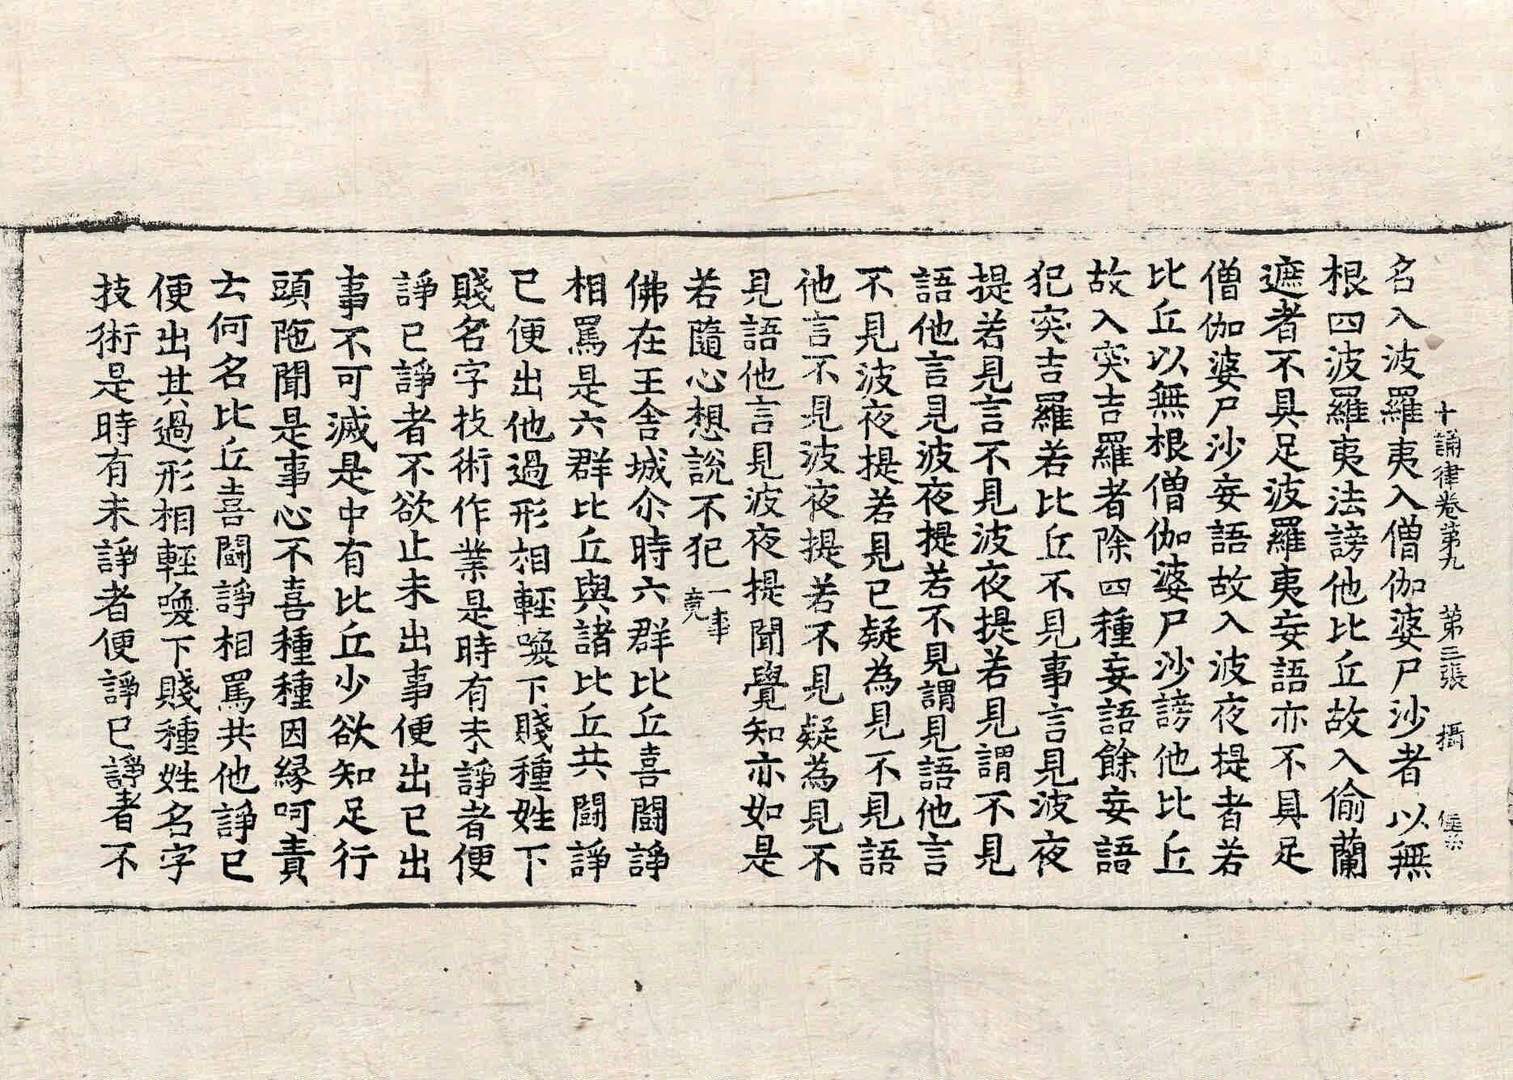 十誦律卷第九 第三張 攝
名入波羅夷入僧伽婆尸沙者以無
根四波羅夷法謗他比丘故入偷蘭
遮者不具足波羅夷妄語亦不具足
僧伽婆尸沙妄語故入波夜提者若
比丘以無根僧伽婆尸沙謗他比丘
故入突吉羅者除四種妄語餘妄語
犯突吉羅若比丘不見事言見波夜
提若見言不見波夜提若見謂不見
語他言見波夜提若不見謂見語他言
不見波夜提若見已疑為見不見語
他言不見波夜提若不見疑為見不
見語他言見波夜提聞覺知亦如是
若隨心想說不犯一事竟
佛在王舍城尒時六群比丘喜鬪諍
相罵是六群比丘與諸比丘共鬪諍
已便出他過形相輕喚下賤種姓下
賤名字技術作業是時有未諍者便
諍已諍者不欲止未出事便出已出
事不可滅是中有比丘少欲知足行
頭陁聞是事心不喜種種因緣呵責
云何名比丘喜鬪諍相罵共他諍已
便出其過形相輕喚下賤種姓名字
技術是時有未諍者便諍已諍者不